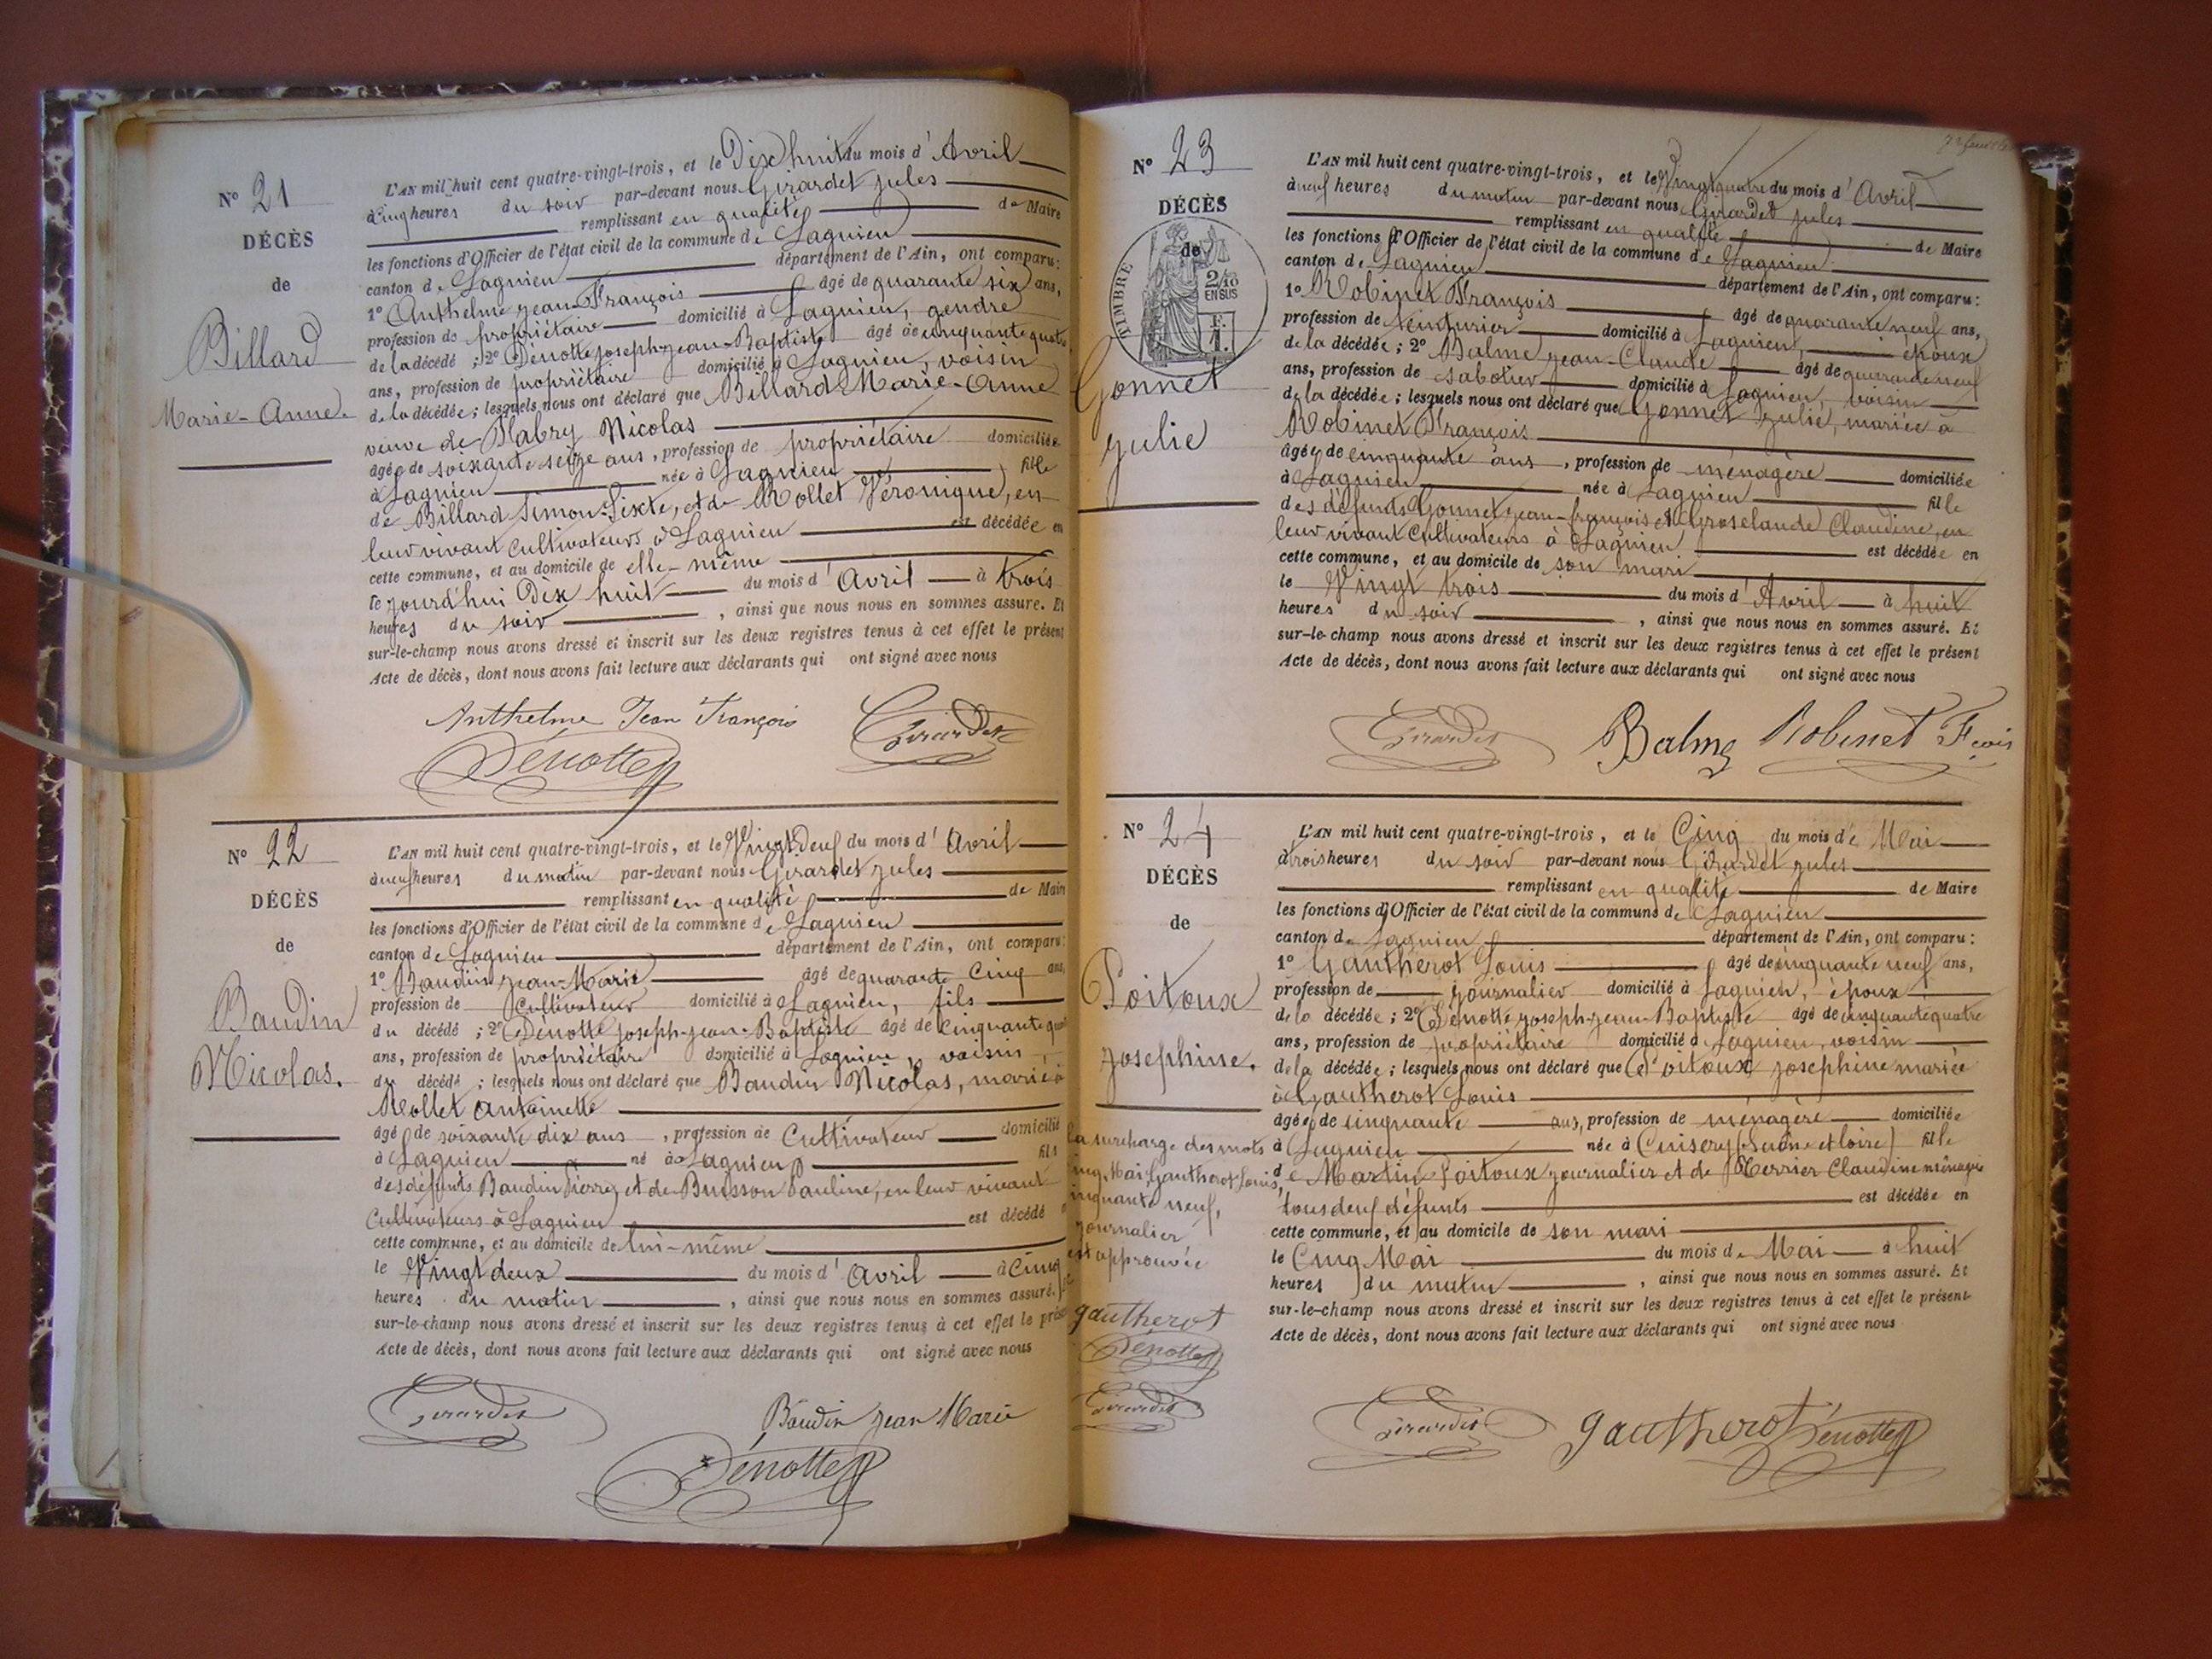 N° 21
DÉCÈS
de
Billard
Marie-Anne.
L'AN mil huit cent quatre-vingt-trois, et le Dix huit du mois d'Avril
à cinq heures du soir par-devant nous Girardet Jules
remplissant en qualité de Maire
les fonctions d'Officier de l'état civil de la commune de Lagnieu
canton de Lagnieu département de l'Ain, ont comparu:
1° Anthelme Jean-François âgé de quarante six ans,
profession de propriétaire domicilié à Lagnieu, gendre
de la décédé ; 2° Denotte Joseph-Jean-Baptiste âgé de cinquante quatre
ans, profession de propriétaire domicilié à Lagnieu, voisin
de la décédée ; lesquels nous ont déclaré que Billard Marie-Anne
veuve de Mabry Nicolas
âgée de soixante seize ans, profession de propriétaire domiciliée
à Lagnieu née à Lagnieu fille
de Billard Simon-Sixte, et de Mollet Véronique, en
leur vivant cultivateurs à Lagnieu est décédée en
cette commune, et au domicile de elle-même
le jourd'hui Dix huit du mois d'Avril à trois
heures du soir , ainsi que nous nous en sommes assuré. Et
sur-le-champ nous avons dressé et inscrit sur les deux registres tenus à cet effet le présent
Acte de décès, dont nous avons fait lecture aux déclarants qui ont signé avec nous
Anthelme Jean François Girardet
Dénotte
N° 22
DÉCÈS
de
Baudin
Nicolas.
L'AN mil huit cent quatre-vingt-trois, et le Vingt Deux du mois d'Avril
à neuf heures du matin par-devant nous Girardet Jules
remplissant en qualité de Maire
les fonctions d'Officier de l'état civil de la commune de Lagnieu
canton de Lagnieu département de l'Ain, ont comparu:
1° Baudin Jean-Marie âgé de quarante cinq ans,
profession de Cultivateur domicilié à Lagnieu, fils
du décédé ; 2° Denotte Joseph-Jean-Baptiste âgé de cinquante
ans, profession de propriétaire domicilié à Lagnieu, voisin,
du décédé ; lesquels nous ont déclaré que Baudin Nicolas, marié à
Mollet Antoinette
âgé de soixante dix ans , profession de Cultivateur domicilié
à Lagnieu né à Lagnieu fils
des défunts Baudin Pierre et de Buisson Pauline, en leur vivant
Cultivateurs à Lagnieu est décédé
cette commune, et au domicile de lui-même
le Vingt deux du mois d'Avril à cinq
heures du matin , ainsi que nous nous en sommes assuré.
sur-le-champ nous avons dressé et inscrit sur les deux registres tenus à cet effet le
Acte de décès, dont nous avons fait lecture aux déclarants qui ont signé avec nous
Girardet Baudin Jean Marie
Dénotte
N° 23
DÉCÈS
de
TIMBRE
2/10
EN SUS
Gonnet
Julie
L'AN mil huit cent quatre-vingt-trois, et le Vingt quatre du mois d'Avril
à neuf heures du matin par-devant nous Girardet Jules
remplissant en qualité de Maire
les fonctions d'Officier de l'état civil de la commune de Lagnieu
canton de Lagnieu département de l'Ain, ont comparu:
1° Robinet François âgé de quarante neuf ans,
profession de teinturier domicilié à Lagnieu, époux
de la décédée ; 2° Balme Jean-Claude âgé de quarante neuf
ans, profession de sabotier domicilié à Lagnieu, voisin
de la décédée ; lesquels nous ont déclaré que Gonnet Julie, mariée à
Robinet François
âgée de cinquante ans , profession de ménagère domiciliée
à Lagnieu née à Lagnieu fille
des défunts Gonnet Jean-François et Groselaude Claudine, en
leur vivant cultivateurs à Lagnieu est décédée en
cette commune, et au domicile de son mari
le Vingt trois du mois d'Avril à huit
heures du soir , ainsi que nous nous en sommes assuré. Et
sur-le-champ nous avons dressé et inscrit sur les deux registres tenus à cet effet le présent
Acte de décès, dont nous avons fait lecture aux déclarants qui ont signé avec nous
Girardet Balme Robinet Fcois
N° 24
DÉCÈS
de
Poitoux
Josephine.
L'AN mil huit cent quatre-vingt-trois, et le Cinq du mois de Mai
à trois heures du soir par-devant nous Girardet Jules
remplissant en qualité de Maire
les fonctions d'Officier de l'état civil de la commune de Lagnieu
canton de Lagnieu département de l'Ain, ont comparu:
1° Gautherot Louis âgé de cinquante neuf ans,
profession de journalier domicilié à Lagnieu, époux
de la décédée ; 2° Denotte Joseph-Jean-Baptiste âgé de cinquante quatre
ans, profession de propriétaire domicilié à Lagnieu, voisin
de la décédée ; lesquels nous ont déclaré que Poitoux Josephine mariée
à Gautherot Louis
âgée de cinquante ans, profession de ménagère domiciliée
à Lagnieu née à Cuisery (Saône et Loire) fille
de Martin Poitoux journalier et de Mercier Claudine ménagère
tous deux défunts est décédée en
cette commune, et au domicile de son mari
le Cinq Mai du mois de Mai à huit
heures du matin , ainsi que nous nous en sommes assuré. Et
sur-le-champ nous avons dressé et inscrit sur les deux registres tenus à cet effet le présent
Acte de décès, dont nous avons fait lecture aux déclarants qui ont signé avec nous
La surcharge des mots
cinq, Mai, Gautherot Louis,
cinquante neuf,
journalier
est approuvée
gautherot
Dénotte
Girardet
Girardet gautherot Dénotte